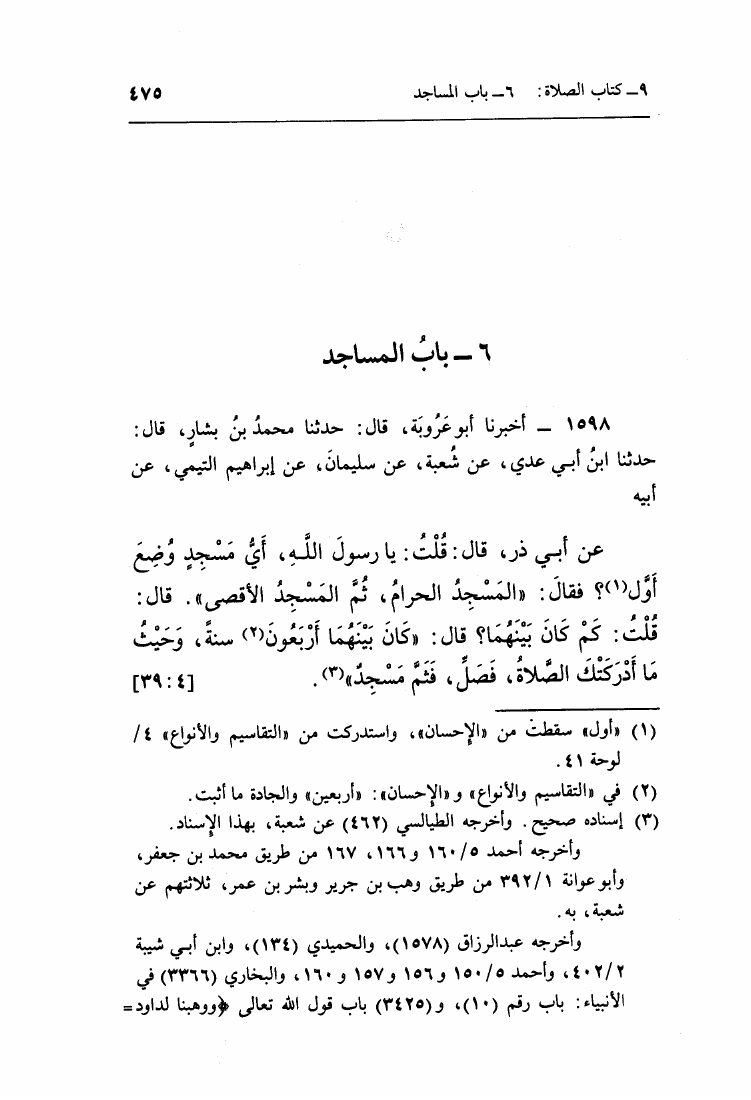 ٩ــ كتاب الصلاة: ٦ــ باب المساجد ٤٧٥
٦ ــ بابُ المساجد
١٥٩٨ ــ أخبرنا أبو عَرُوبَة، قال: حدثنا محمدُ بنُ بشارٍ، قال:
حدثنا ابنُ أبي عدي، عن شُعبة، عن سليمانَ، عن إبراهيم التيمي، عن
أبيه
عن أبي ذر، قال: قُلْتُ: يا رسولَ اللَّهِ، أَيُّ مَسْجِدٍ وُضِعَ
أَوَّل(١)؟ فقالَ: «المَسْجِدُ الحرامُ، ثُمَّ المَسْجِدُ الأقصى». قال:
قُلْتُ: كَمْ كَانَ بَيْنَهُمَا؟ قال: «كَانَ بَيْنَهُمَا أَرْبَعُونَ(٢) سنةً، وَحَيْثُ
مَا أَدْرَكَتْكَ الصَّلاةُ، فَصَلِّ، فَثَمَّ مَسْجِدٌ»(٣). [٤: ٣٩]
(١) «أول» سقطت من «الإحسان»، واستدركت من «التقاسيم والأنواع» ٤/
لوحة ٤١.
(٢) في «التقاسيم والأنواع» و«الإحسان»: «أربعين» والجادة ما أثبت.
(٣) إسناده صحيح. وأخرجه الطيالسي (٤٦٢) عن شعبة، بهذا الإسناد.
وأخرجه أحمد ٥/١٦٠ و١٦٦، ١٦٧ من طريق محمد بن جعفر،
وأبو عوانة ١/٣٩٢ من طريق وهب بن جرير وبشر بن عمر، ثلاثتهم عن
شعبة، به.
وأخرجه عبدالرزاق (١٥٧٨)، والحميدي (١٣٤)، وابن أبي شيبة
٢/٤٠٢، وأحمد ٥/١٥٠ و١٥٦ و١٥٧ و١٦٠، والبخاري (٣٣٦٦) في
الأنبياء: باب رقم (١٠)، و(٣٤٢٥) باب قول الله تعالى ﴿ووهبنا لداود=